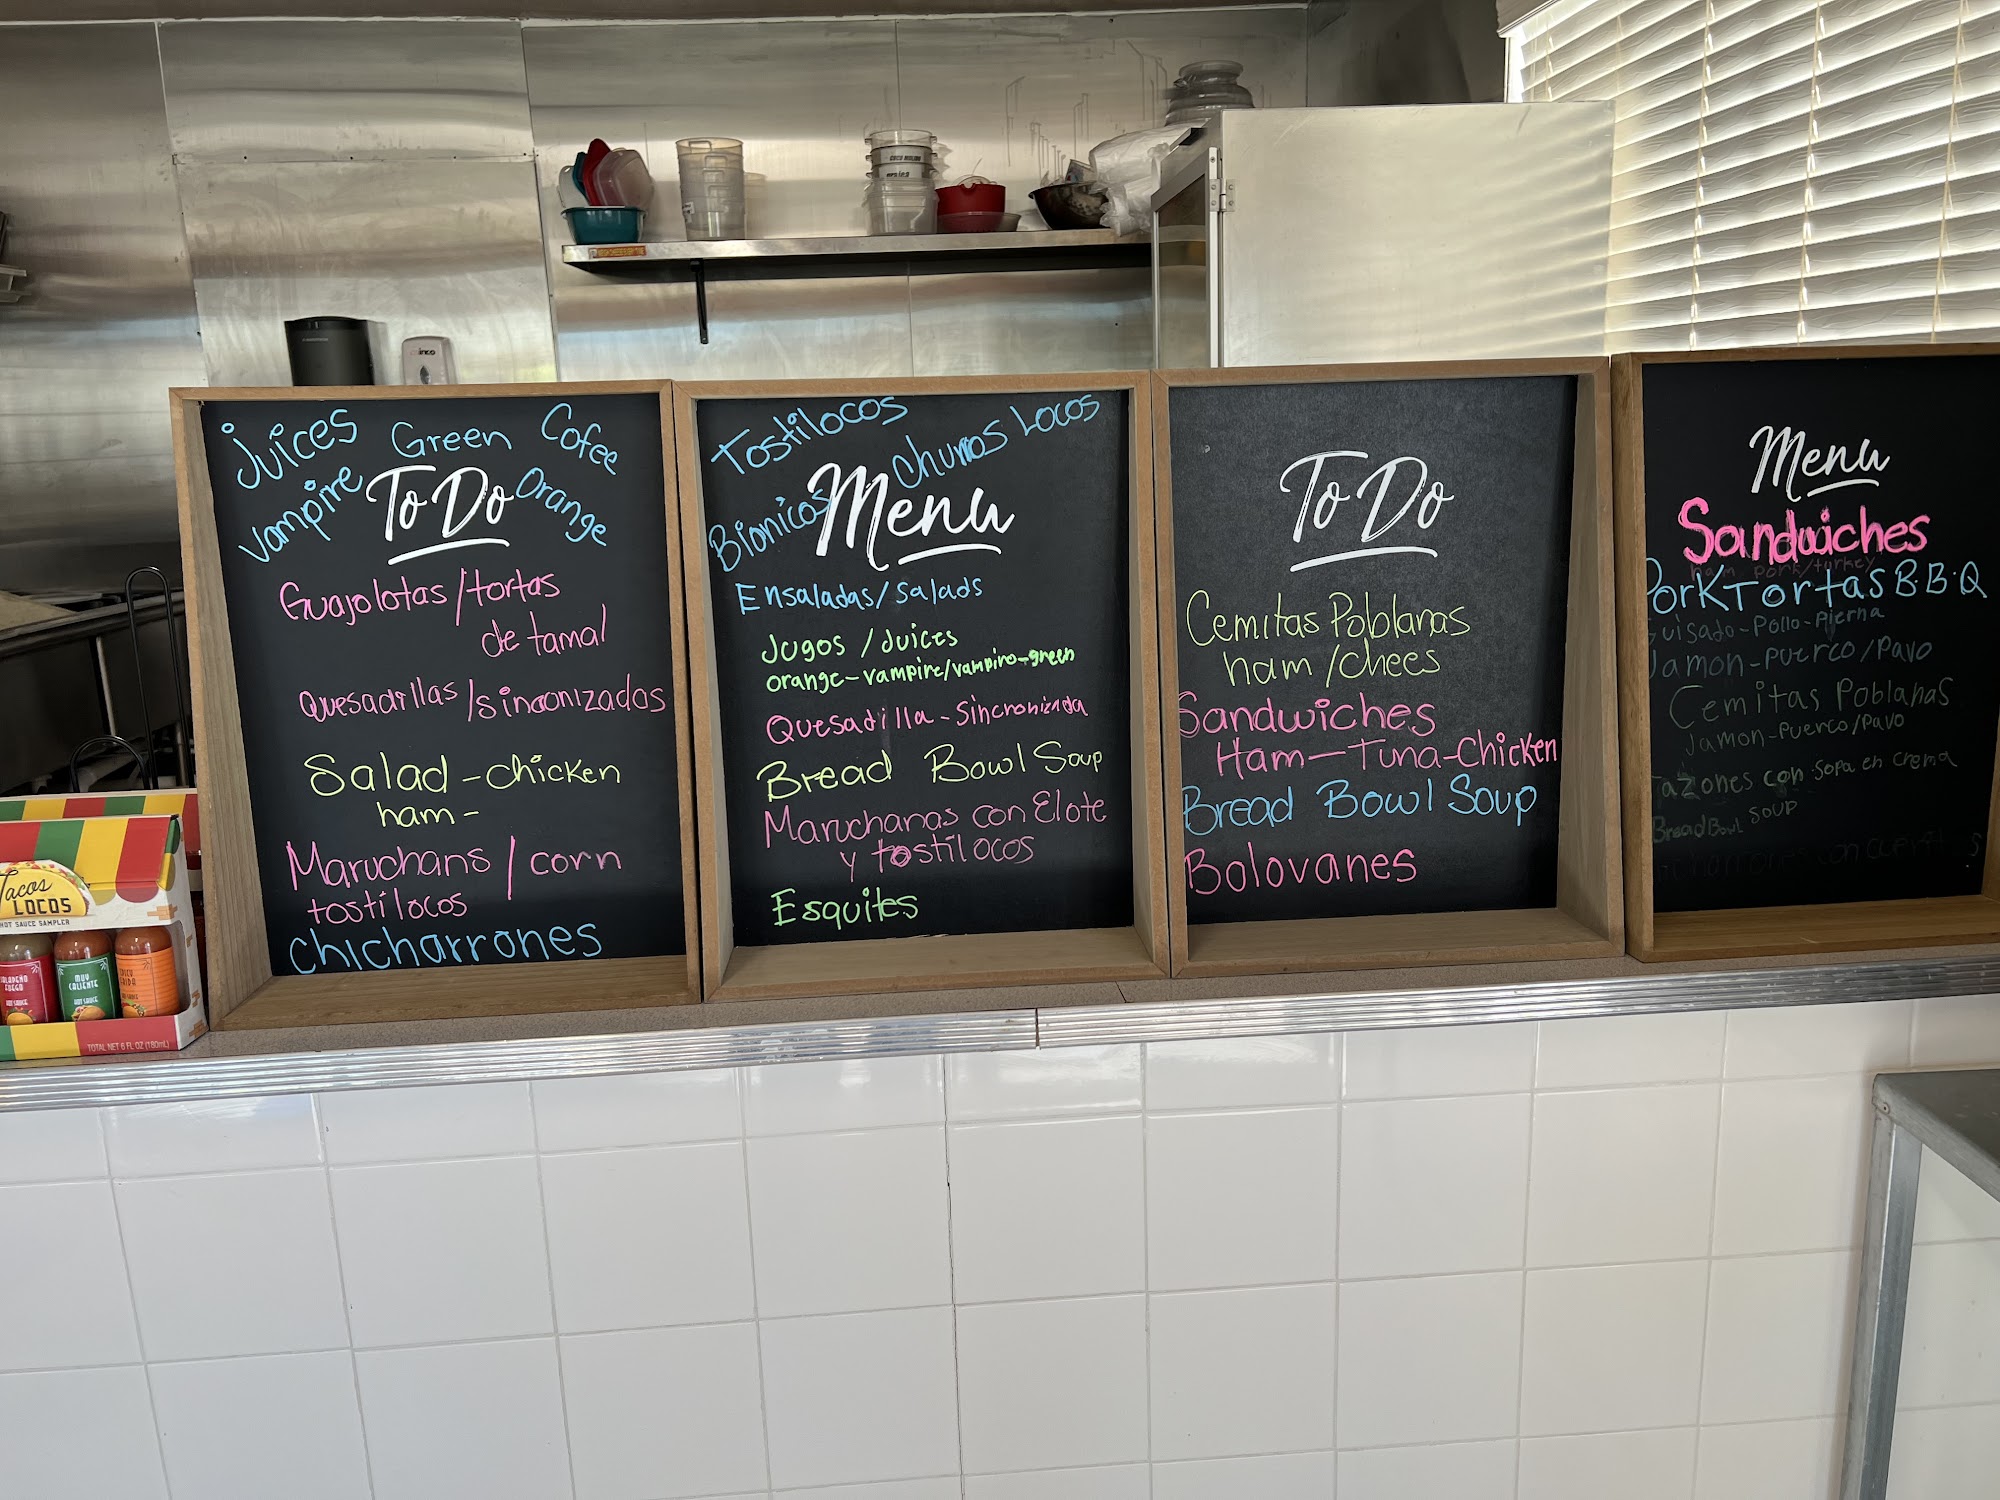 Juices Green Cofee
Vampire Orange
To Do
Guajolotas/tortas
de tamal
Quesadillas/sincronizadas
Salad - chicken
ham -
Maruchans / corn
tostilocos
Chicharrones
Tostilocos
Churros Locos
Bionicos
Menu
Ensaladas/Salads
Jugos / Juices
orange - vampire/vampiro - green
Quesadilla - Sincronizada
Bread Bowl Soup
Maruchanas con Elote
y tostilocos
Esquites
To Do
Cemitas Poblanas
ham / chees
Sandwiches
Ham - Tuna - Chicken
Bread Bowl Soup
Bolovanes
Menu
Sandwiches
ham pork/turkey
Pork Tortas B.B.Q
Guisado - Pollo - Pierna
Jamon - Puerco/Pavo
Cemitas Poblanas
Jamon - Puerco/Pavo
Tazones con sopa en crema
Bread Bowl soup
Tacos
LOCOS
HOT SAUCE SAMPLER
MUY
CALIENTE
HOT SAUCE
TOTAL NET 6 FL OZ (180mL)